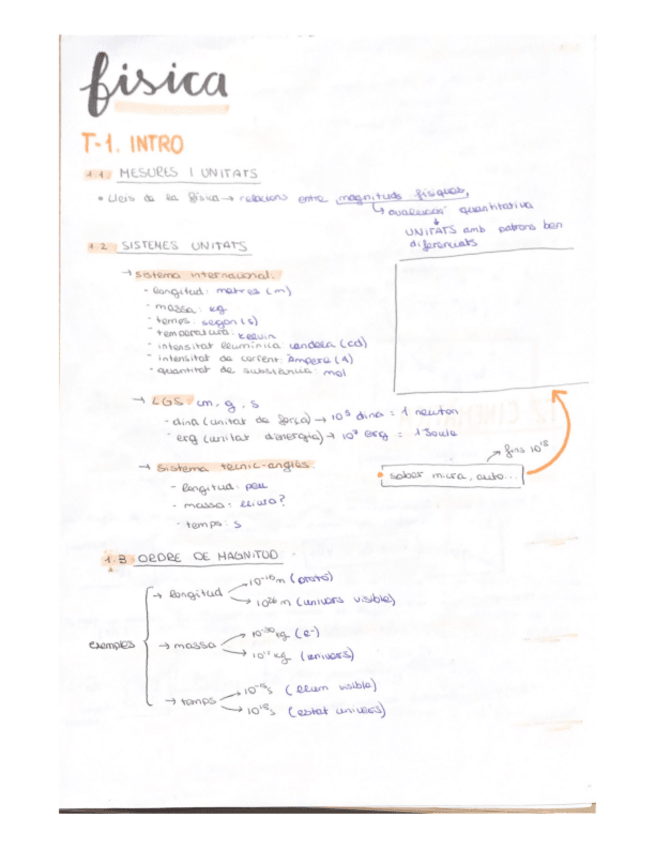 física
T-1. INTRO
1.1 MESURES I UNITATS
• Lleis de la física → relacions entre magnituds físiques,
↳ avaluació quantitativa
↓
UNITATS amb patrons ben
diferenciats
1.2 SISTEMES UNITATS
→ sistema internacional:
- longitud: metres (m)
- massa: kg
- temps: segon (s)
- temperatura: kelvin
- intensitat lluminica: candela (cd)
- intensitat de corrent: ampere (A)
- quantitat de substància: mol
→ CGS: cm, g, s
- dina (unitat de força) → 10⁵ dina = 1 newton
- erg (unitat d'energia) → 10⁷ erg = 1 Joule
→ fins 10¹⁸
• saber micra, auto...
→ Sistema tècnic-anglès:
- longitud: peu
- massa: lliura?
- temps: s
1.3 ORDRE DE MAGNITUD
exemples
→ longitud
→ m (protó)
→ 10²⁶ m (univers visible)
→ massa
→ 10⁻³⁰ kg (e⁻)
→ kg (univers)
→ temps
→ 10⁻¹⁵ s (llum visible)
→ 10¹⁸ s (estat univers)